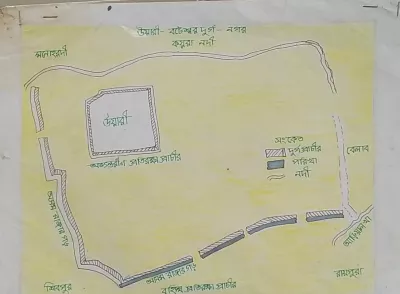 উয়ারী-বটেশ্বর দুর্গ-নগর
কয়রা নদী
উয়ারী
অভ্যন্তরীণ প্রতিরক্ষা প্রাচীর
সংকেত
দুর্গপ্রাচীর
পরিখা
নদী
বেলাব
অসম রাজার গড়
অসম রাজার গড়
শিবপুর
বহিঃস্থ প্রতিরক্ষা প্রাচীর
রায়পুরা